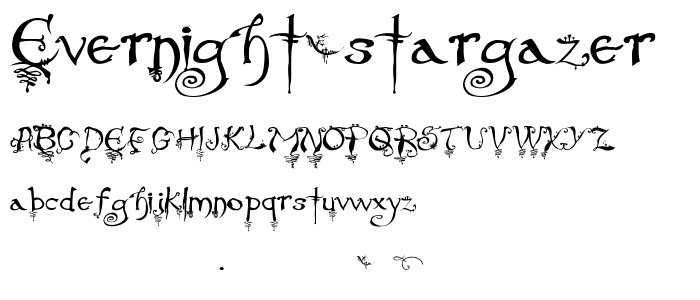 Evernight-stargazer
ABCDEFGHIJKLMNOPQRSTUVWXYZ
abcdefghijklmnopqrstuvwxyz
.